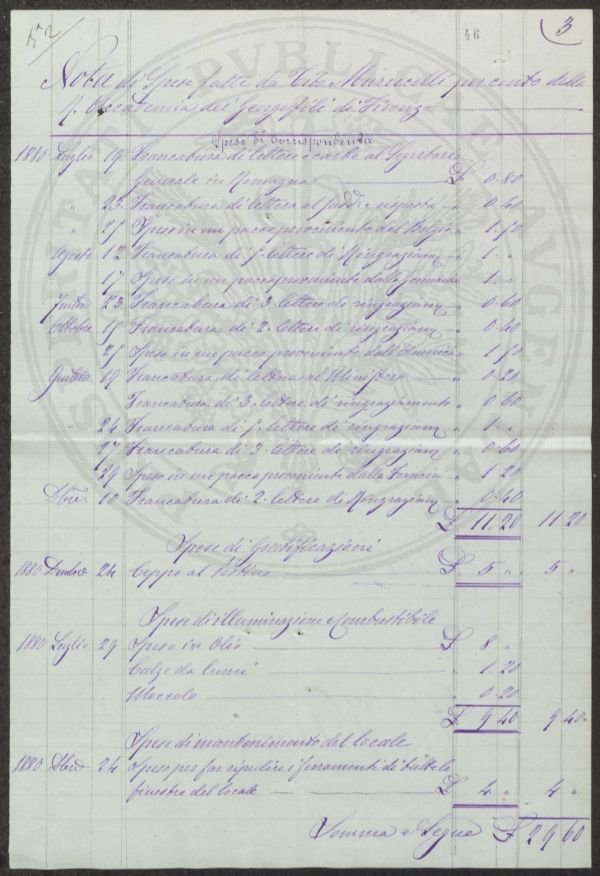 46
3
Nota di Spese fatte da Tito Mariocelli per conto della
R. Accademia dei Georgofili di Firenze
Spese di Corrispondenza
1880 Luglio 19 Francatura di lettere e carte al Segretario
Generale in Romagna £ 0.80
" 23 Francatura di lettera al sudd. e risposta " 0.40
" 25 Spese in un pacco proveniente dal Belgio " 1.50
Agosto 12 Francatura di 5. lettere di Ringraziam " 1. "
17 Spese in un pacco proveniente dalla Germania " 1. "
7mbre 23 Francatura di 3. lettere di ringraziam " 0.60
Ottobre 15 Francatura di 2. lettere di ringraziam " 0.40
25 Spese in un pacco proveniente dall'America " 1.50
9mbre 19 Francatura di lettera al Ministero " 0.20
Francatura di 3. lettere di ringraziamento " 0.60
" 24 Francatura di 5. lettere di ringraziam " 1. "
27 Francatura di 3. lettere di ringraziam " 0.60
29 Spese in un pacco proveniente dalla Francia " 1.20
Dbre 10 Francatura di 2. lettere di Ringraziam " 0.40
£ 11.20 11 20
Spese di Gratificazioni
1880 Dicembre 24 Ceppo al Postino £ 5 " 5 "
Spese di illuminazione e Combustibile
1880 Luglio 29 Spese in Olio £ 8 "
Calze da lumi " 1.20
Moccolo " 0.20
£ 9 40 9 40
Spese di mantenimento del locale
1880 Dbre 24 Spese per far ripulire i ferramenti di tutte le
finestre del locale £ 4 " 4 "
Somma e Segue £ 29 60